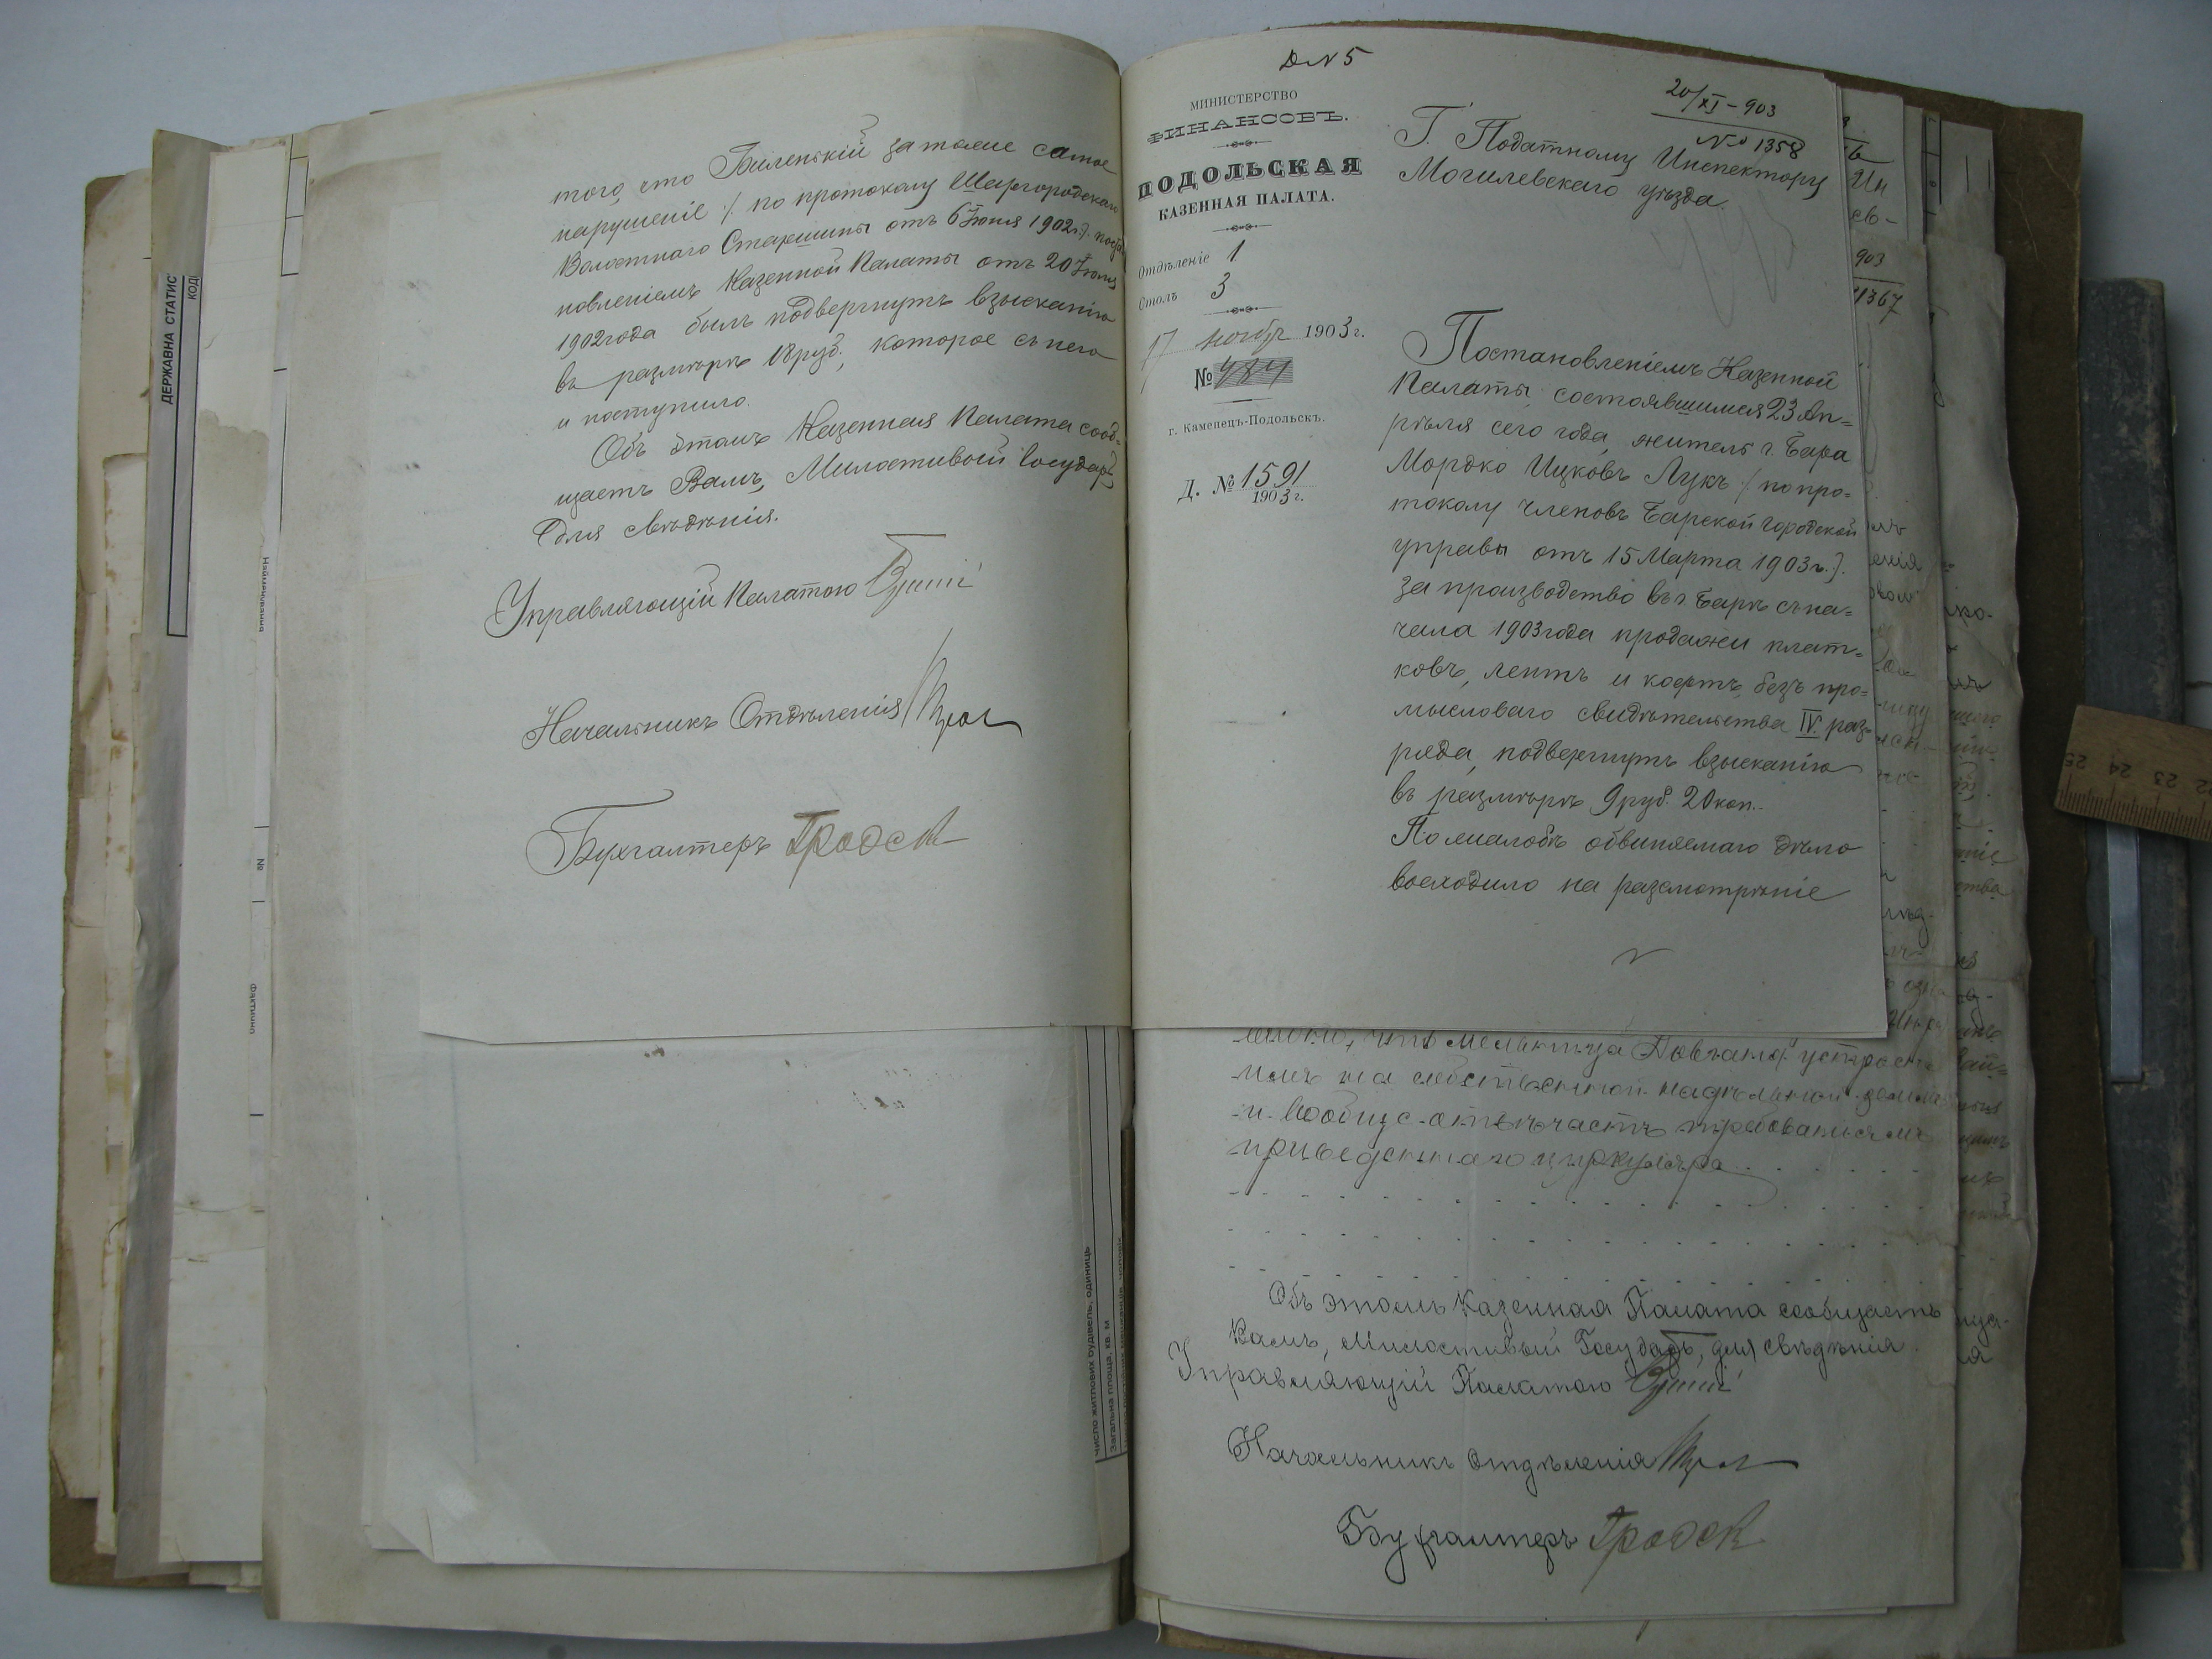 того, что Биленькій за такое самое
нарушеніе /. по протоколу Шаргородскаго
Волостного Старшины отъ 6 Іюня 1902 г.). поста
новленіемъ Казенной Палаты отъ 20 Іюня
1902 года былъ подвергнутъ взысканію
въ размѣрѣ 18 руб., которое съ него
и поступило.
Объ этомъ Казенная Палата сооб-
щаетъ Вамъ, Милостивый Государь,
для свѣдѣнія.
Управляющій Палатою
Начальникъ Отдѣленія
Бухгалтеръ Гродск
ДЕРЖАВНА СТАТИС
КОД
Найменуван
№
Фактично
число житлових будівель, одиниць
Загальна площа, кв. м
Д N 5
МИНИСТЕРСТВО
ФИНАНСОВЪ.
ПОДОЛЬСКАЯ
КАЗЕННАЯ ПАЛАТА.
Отдѣленіе 1
Столъ 3
17 ноябр 1903 г.
№ 484
г. Каменецъ-Подольскъ.
Д. № 1591
1903 г.
20/XI – 903
№ 1358
Г. Податному Инспектору
Могилевскаго уѣзда.
Постановленіемъ Казенной
Палаты, состоявшимся 23 Ап=
рѣля сего года, житель г. Бара
Мордко Ицковъ Лукъ /. по про=
токолу членовъ Барской городской
управы отъ 15 Марта 1903 г.).
за производство въ г. Барѣ съ на=
чала 1903 года продажи плат=
ковъ, лентъ и кофтъ, безъ про=
мысловаго свидѣтельства IV раз=
ряда, подвергнутъ взысканію
въ размѣрѣ 9 руб. 20 коп.
По жалобѣ обвиняемаго дѣло
восходило на разсмотрѣніе
что мельница Довгана устрое-
на собственной надѣльной землѣ
и вообще отвѣчаетъ требованіямъ
приведеннаго циркуляра
Объ этомъ Казенная Палата сообщаетъ
Вамъ, Милостивый Государь, для свѣдѣнія.
Управляющій Палатою
Начальникъ Отдѣленія
Бухгалтеръ Гродск
903
1367
25 24 23 22